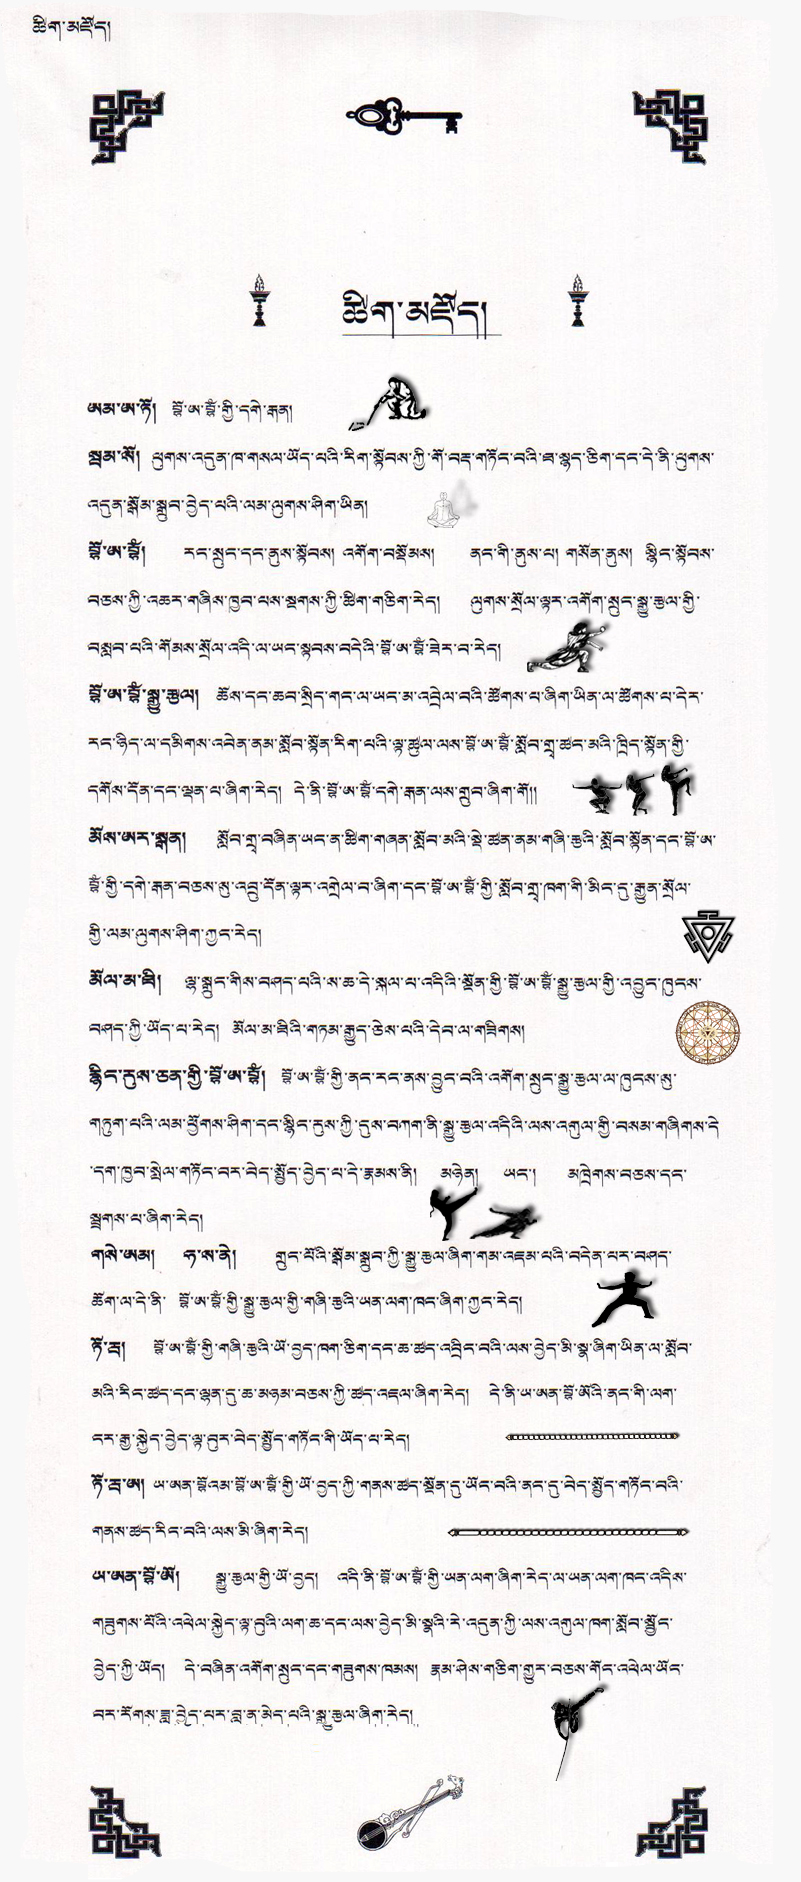 ཚིག་མཛོད།
ཚིག་མཛོད།
ཨམ་ཨ་ཏོ། བྷོ་ཨ་བྷཱྀ་གྱི་དགེ་རྒན།
སྦམ་སོ། ཕུགས་འདུན་ཁ་གསལ་ཡོད་པའི་རིག་སྟོབས་ཀྱི་གོ་བརྡ་གཏོང་བའི་ཐ་སྙད་ཅིག་དང་དེ་ནི་ཕུགས་
འདུན་སྒོམ་སྒྲུབ་བྱེད་པའི་ལམ་ལུགས་ཤིག་ཡིན།
རང་སྲུང་དང་ནུས་སྟོབས། འགོག་བསྡོམས། ནང་གི་ནུས་པ། གསོན་ནུས། སྙིང་སྟོབས་
བཅས་ཀྱི་འཆར་གཞིས་ཁྱབ་པས་སྔགས་ཀྱི་ཚིག་གཅིག་རེད། ལུགས་སྲོལ་ལྟར་འགོག་སྲུང་སྒྱུ་རྩལ་གྱི་
བསླབ་པའི་གོམས་སྲོལ་འདི་ལ་ཡང་སྟབས་བདེའི་ ཟེར་བ་རེད།
སྒྱུ་རྩལ། ཆོས་དང་ཆབ་སྲིད་གང་ལ་ཡང་མ་འབྲེལ་བའི་ཚོགས་པ་ཞིག་ཡིན་ལ་ཚོགས་པ་དེར་
རང་ཉིད་ལ་དམིགས་འབེན་ནམ་སློབ་སྟོན་རིག་པའི་ལྟ་ཚུལ་ལས་ སློབ་གྲྭ་ཚང་མའི་ཁྲིད་སྟོན་གྱི་
དགོས་དོན་དང་ལྡན་པ་ཞིག་རེད། དེ་ནི་ དགེ་རྒན་ལས་གྲུབ་ཞིག་གོ།།
མོས་ཨར་སྒན། སློབ་གྲྭ་བཞིན་ཡང་ན་ཚིག་གཞན་སློབ་མའི་སྡེ་ཚན་ནམ་གཞི་རྩའི་སློབ་སྟོན་དང་
གྱི་དགེ་རྒན་བཅས་སུ་འབྲུ་དོན་ལྟར་འགྲེལ་བ་ཞིག་དང་ གྱི་སློབ་གྲྭ་ཁག་གི་མིང་དུ་རྒྱུན་སྲོལ་
གྱི་ལམ་ལུགས་ཤིག་ཀྱང་རེད།
མོལ་མ་ཐི། ལྷ་སྒྲུང་གིས་བཤད་པའི་ས་ཆ་དེ་སྐལ་པ་འདིའི་སྔོན་གྱི་ སྒྱུ་རྩལ་གྱི་འབྱུང་ཁུངས་
བཤད་ཀྱི་ཡོད་པ་རེད། མོལ་མ་ཐིའི་གཏམ་རྒྱུད་ཅེས་པའི་དེབ་ལ་གཟིགས།
སྙིང་རུས་ཅན་གྱི་ གྱི་ནང་རང་ནས་བྱུང་བའི་འགོག་སྲུང་སྒྱུ་རྩལ་ལ་ཁུངས་སུ་
གཏུག་པའི་ལམ་ཕྱོགས་ཤིག་དང་སྙིང་རུས་ཀྱི་དུས་བཀག་ནི་སྒྱུ་རྩལ་འདིའི་ལས་འགུལ་གྱི་བསམ་གཞིགས་དེ་
དག་ཁྱབ་སྤེལ་གཏོང་བར་བེད་སྤྱོད་བྱེད་པ་དེ་རྣམས་ནི། མཉེན། ཡང་། མཁྲེགས་བཅས་དང་
སྦྲགས་པ་ཞིག་རེད།
གསེ་ཨམ། ཧ་ས་ནེ། གྲུང་པོའི་སྒོམ་སྒྲུབ་ཀྱི་སྒྱུ་རྩལ་ཞིག་གམ་འཇམ་པའི་བདེན་པར་བཤད་
ཆོག་ལ་དེ་ནི་ གྱི་སྒྱུ་རྩལ་གྱི་གཞི་རྩའི་ཡན་ལག་ཁང་ཞིག་ཀྱང་རེད།
ཏོ་རྡ། གྱི་གཞི་རྩའི་ཡོ་བྱད་ཁག་ཅིག་དང་ཆ་ཚད་འབྲིང་བའི་ལས་བྱེད་མི་སྣ་ཞིག་ཡིན་ལ་སློབ་
མའི་རིང་ཚད་དང་ལྷན་དུ་ཆ་མཉམ་བཅས་ཀྱི་ཚད་འཇལ་ཞིག་རེད། དེ་ནི་ཡ་ཨན་ ནང་གི་ལག་
དར་རྒྱ་སྐྱེད་བྱེད་ལྟ་བུར་བེད་སྤྱོད་གཏོང་གི་ཡོད་པ་རེད།
ཏོ་རྡ་ཨ། ཡ་ཨན་ གྱི་ཡོ་བྱད་ཀྱི་གནས་ཚད་སྔོན་དུ་ཡོང་བའི་ནང་དུ་བེད་སྤྱོད་གཏོང་བའི་
གནས་ཚད་རིང་བའི་ལས་མི་ཞིག་རེད།
ཡ་ཨན་ སྒྱུ་རྩལ་གྱི་ཡོ་བྱད། འདི་ནི་ གྱི་ཡན་ལག་ཞིག་རེད་ལ་ཡན་ལག་ཁང་འདིས་
གཟུགས་པོའི་འཕེལ་སྐྱེད་ལྟ་བུའི་ལག་ཆ་དང་ལས་བྱེད་མི་སྣའི་རེ་འདུན་ཀྱི་ལས་འགུལ་ཁག་སློབ་སྦྱོང་
བྱེད་ཀྱི་ཡོད། དེ་བཞིན་འགོག་སྲུང་དང་གཟུགས་ཁམས། རྣམ་ཤེས་གཅིག་གྱུར་བཅས་གོང་འཕེལ་ཡོང་
བར་རོགས་ཟླ་བྱེད་པར་བླ་ན་མེད་པའི་སྒྱུ་རྩལ་ཞིག་རེད།